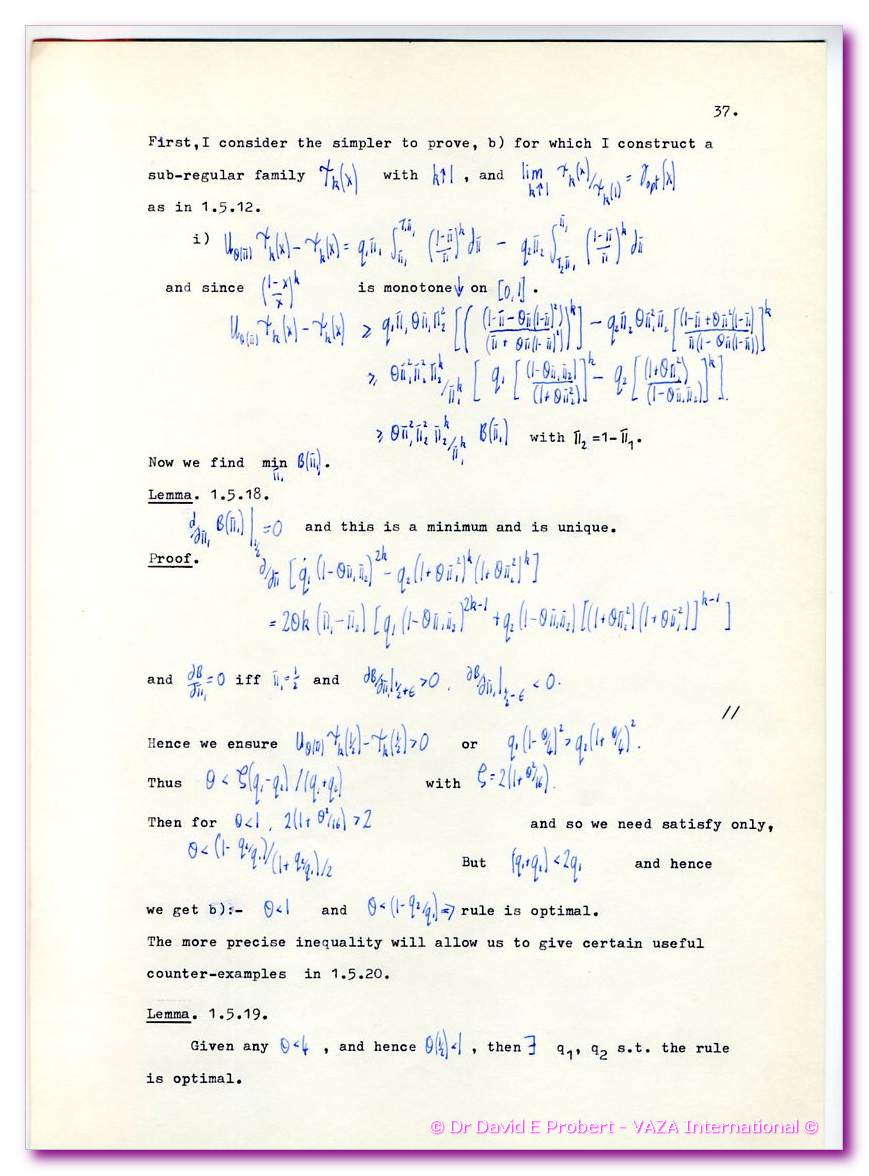 37.
First,I consider the simpler to prove, b) for which I construct a
sub-regular family ψ_k(x) with k↑1 , and lim_{k↑1} ψ_k(x)/ψ_k(1) = γ_opt(x)
as in 1.5.12.
i) U_{θ(π)} ψ_k(x) - ψ_k(x) =
and since ((1-x)/x)^k is monotone↓ on [0,1] .
U_{θ(π)} ψ_k(x) - ψ_k(x) ≥
≥
≥ B(π₁) with π₂ =1-π₁.
Now we find min_{π₁} B(π₁).
Lemma. 1.5.18.
∂/∂π₁ B(π₁)|_{½} =0 and this is a minimum and is unique.
Proof. ∂/∂π₁ [q₁(1-θπ₁π₂)^{2k} - q₂(1+θπ₁²)^k(1+θπ₂²)^k]
= 2θk(π₁-π₂)[q₁(1-θπ₁π₂)^{2k-1} + q₂(1-θπ₁π₂)[(1+θπ₁²)(1+θπ₂²)]^{k-1}]
and ∂B/∂π₁ =0 iff π₁=½ and ∂B/∂π₁|_{½+ε} >0 , ∂B/∂π₁|_{½-ε} < 0.
//
Hence we ensure U_{θ(π)} ψ_k(½)-ψ_k(½)>0 or q₁(1-θ/4)²>q₂(1+θ/4)².
Thus θ < ζ(q₁-q₂)/(q₁+q₂) with ζ=2(1+θ²/16).
Then for θ<1 , 2(1+θ²/16) >2 and so we need satisfy only,
θ< (1-q₂/q₁)/(1+q₂/q₁)/2 But (q₁+q₂) <2q₁ and hence
we get b):- θ<1 and θ<(1-q₂/q₁)⇒ rule is optimal.
The more precise inequality will allow us to give certain useful
counter-examples in 1.5.20.
Lemma. 1.5.19.
Given any θ<4 , and hence θ(½)<1 , then ∃ q₁, q₂ s.t. the rule
is optimal.
© Dr David E Probert - VAZA International ©